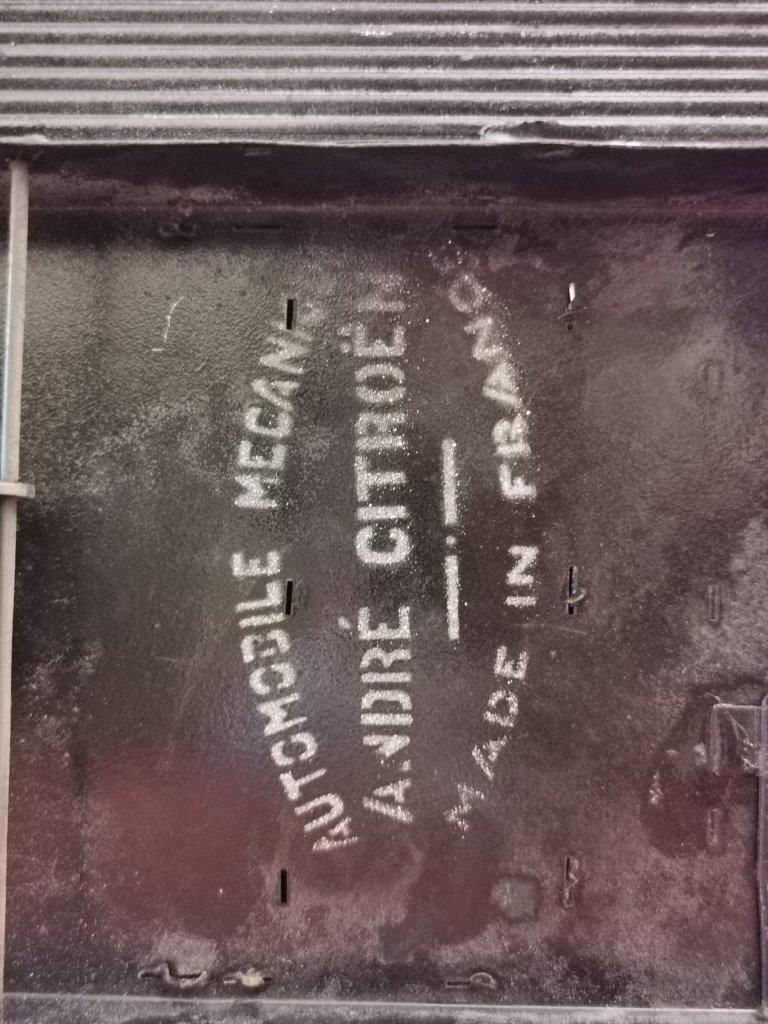 AUTOMOBILE MECANI
ANDRÉ CITROËN
MADE IN FRANCE